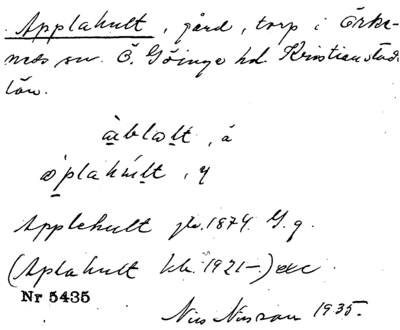 Applahult, gård, torp i Örke-
neds sn. Ö. Göinge hd. Kristianstads
län.
àblạlt, å
Applehult jb. 1874. G. g.
(Aplahult kb. 1921–) etc
Nr 5435
Nils Nilsson 1935.